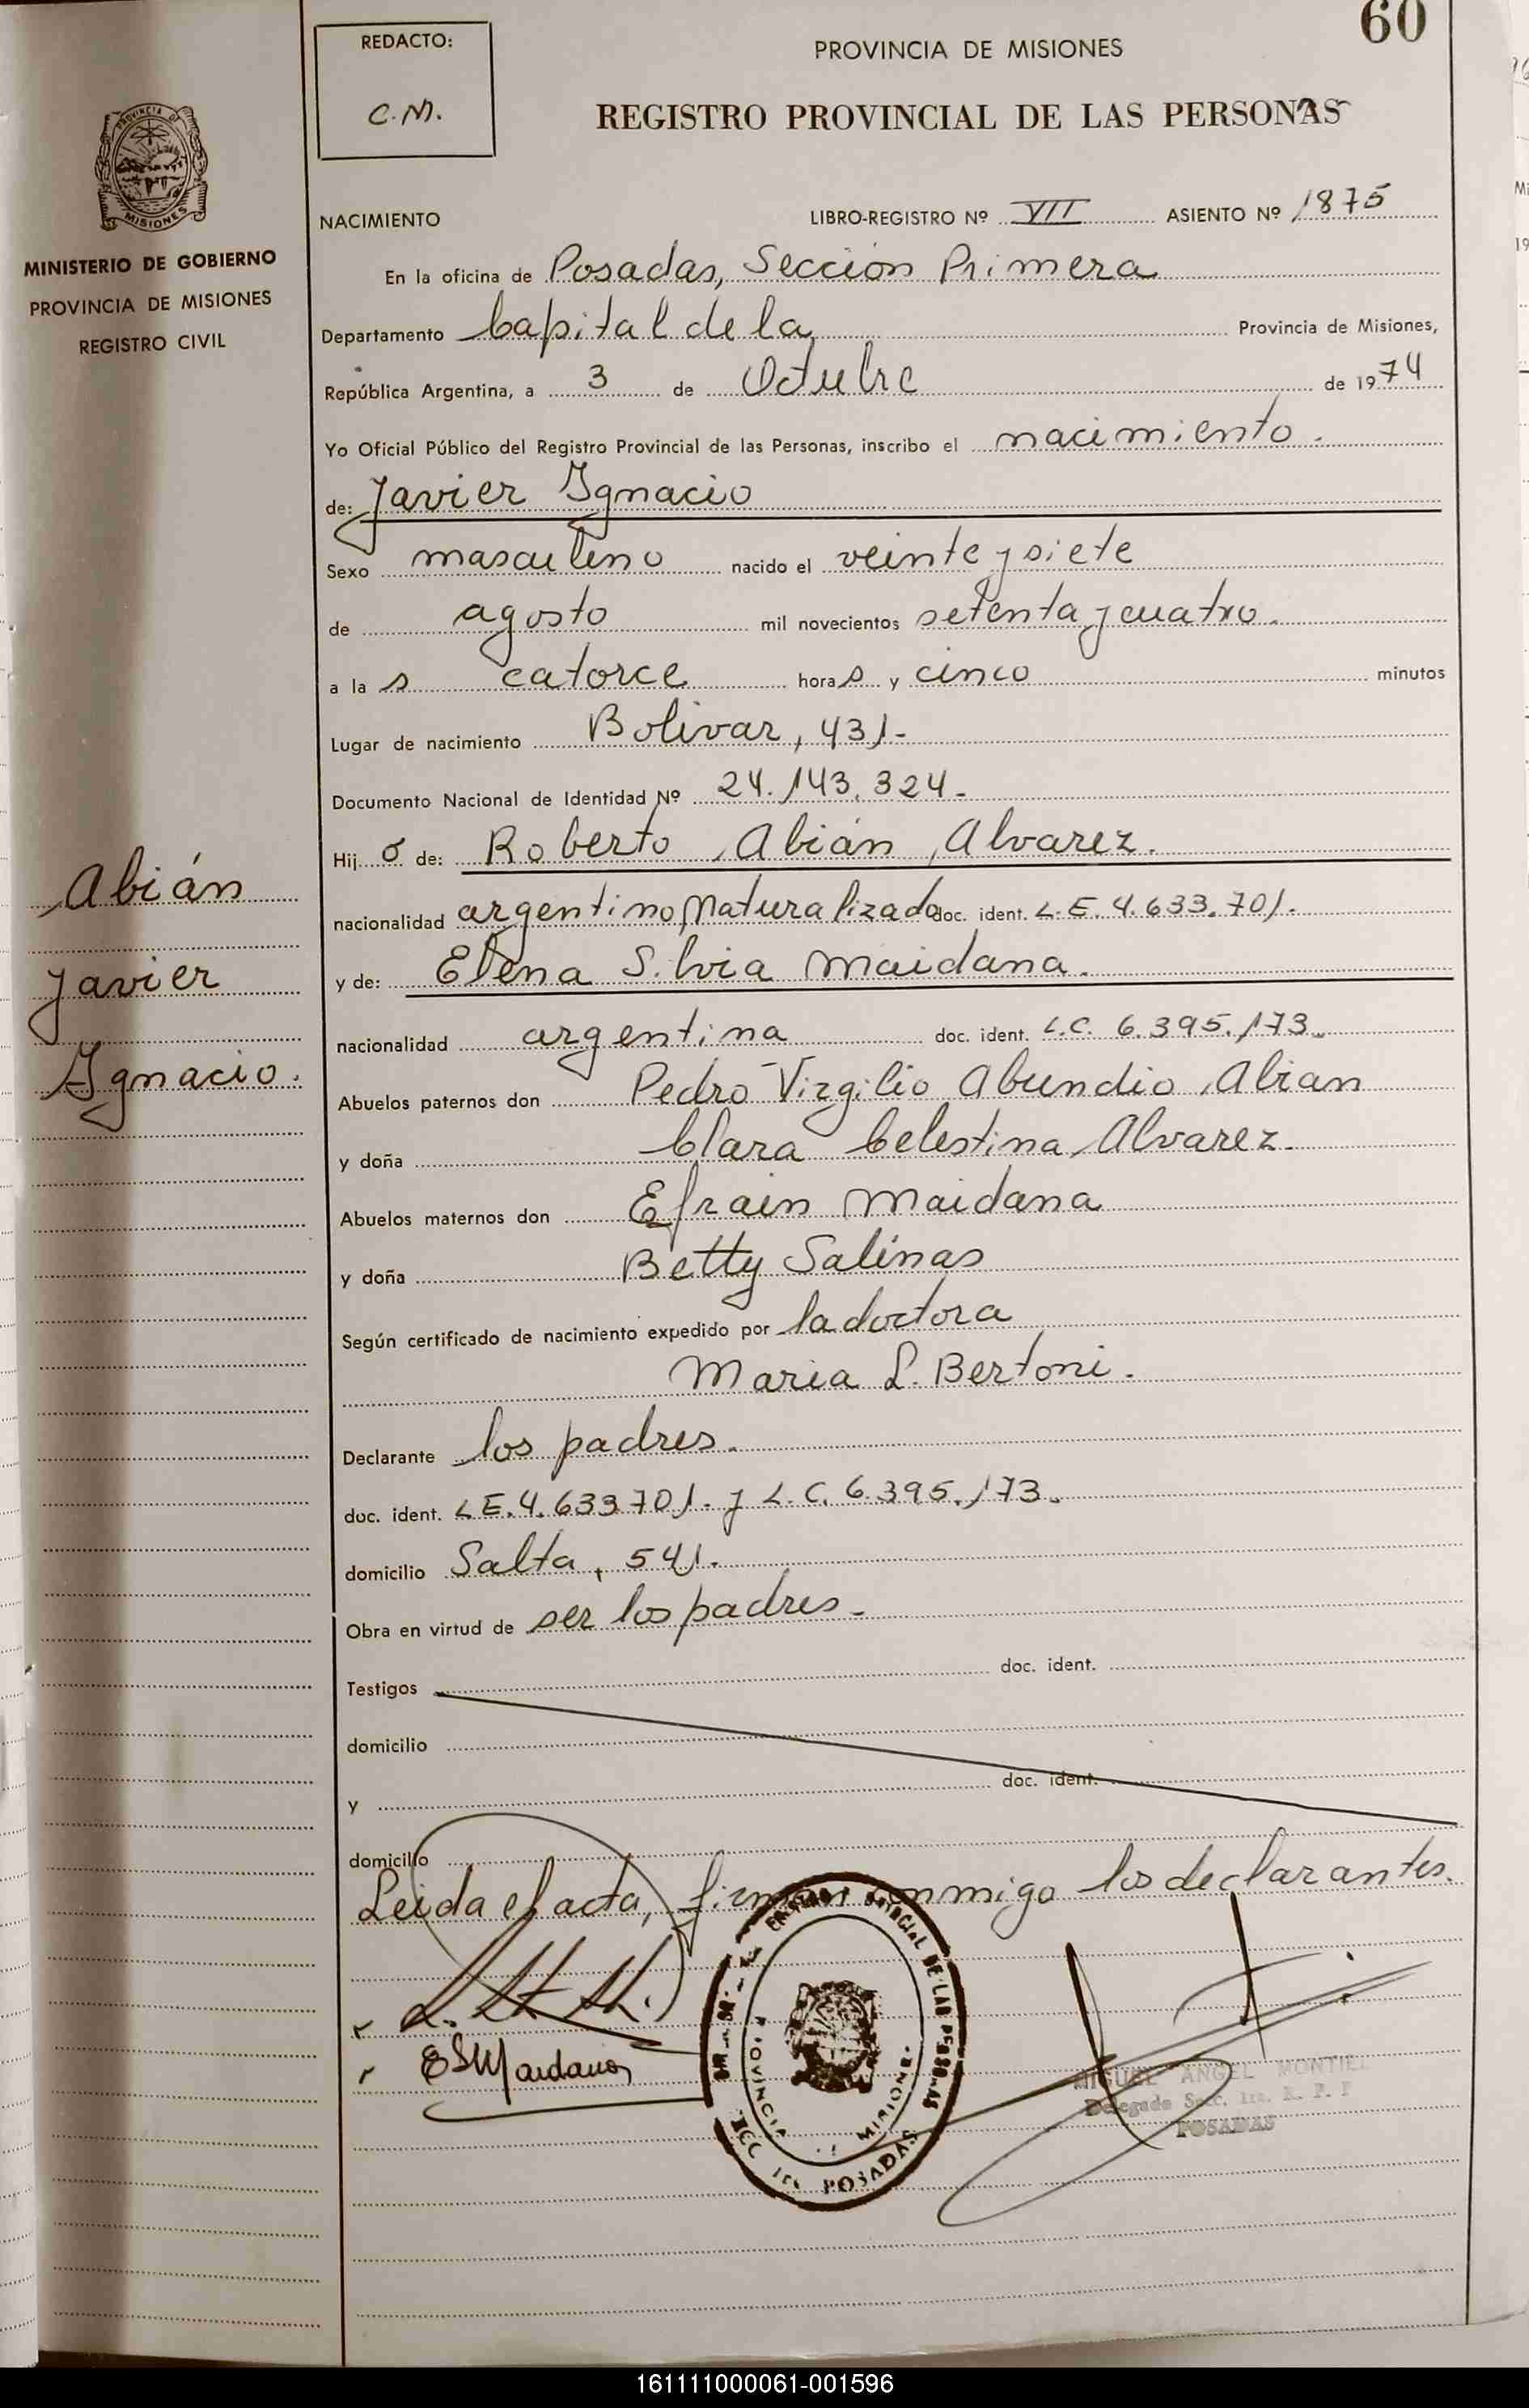 60
REDACTO:
C.M.
PROVINCIA DE MISIONES
REGISTRO PROVINCIAL DE LAS PERSONAS
PROVINCIA DE
MISIONES
MINISTERIO DE GOBIERNO
PROVINCIA DE MISIONES
REGISTRO CIVIL
NACIMIENTO LIBRO-REGISTRO Nº VII ASIENTO Nº 1875
En la oficina de Posadas, Sección Primera
Departamento Capital de la Provincia de Misiones,
República Argentina, a 3 de Octubre de 1974
Yo Oficial Público del Registro Provincial de las Personas, inscribo el nacimiento.
de: Javier Ignacio
Sexo masculino nacido el veinte y siete
de agosto mil novecientos setenta y cuatro.
a la s catorce hora s y cinco minutos
Lugar de nacimiento Bolivar, 431-
Documento Nacional de Identidad Nº 24.143.324-
Hij o de: Roberto Abián Alvarez.
nacionalidad argentino naturalizado doc. ident. L.E. 4.633.701.
y de: Elena Silvia Maidana.
nacionalidad argentina doc. ident. L.C. 6.395.173-
Abuelos paternos don Pedro Virgilio Abundio Abian
y doña Clara Celestina Alvarez-
Abuelos maternos don Efrain Maidana
y doña Betty Salinas
Según certificado de nacimiento expedido por la doctora
Maria L. Bertoni.
Declarante los padres.
doc. ident. L E. 4.633 701. y L.C. 6.395.173-
domicilio Salta, 541.
Obra en virtud de ser los padres-
Testigos doc. ident.
domicilio
y doc. ident.
domicilio
Leida el acta, firman conmigo los declarantes.
Abián
Javier
Ignacio.
ESMaidana
PROVINCIAL DE LAS PERSONAS
PROVINCIA MISIONES
POSADAS
MIGUEL ANGEL MONTIEL
Delegado Secc. 1ra. R. P. P
POSADAS
161111000061-001596